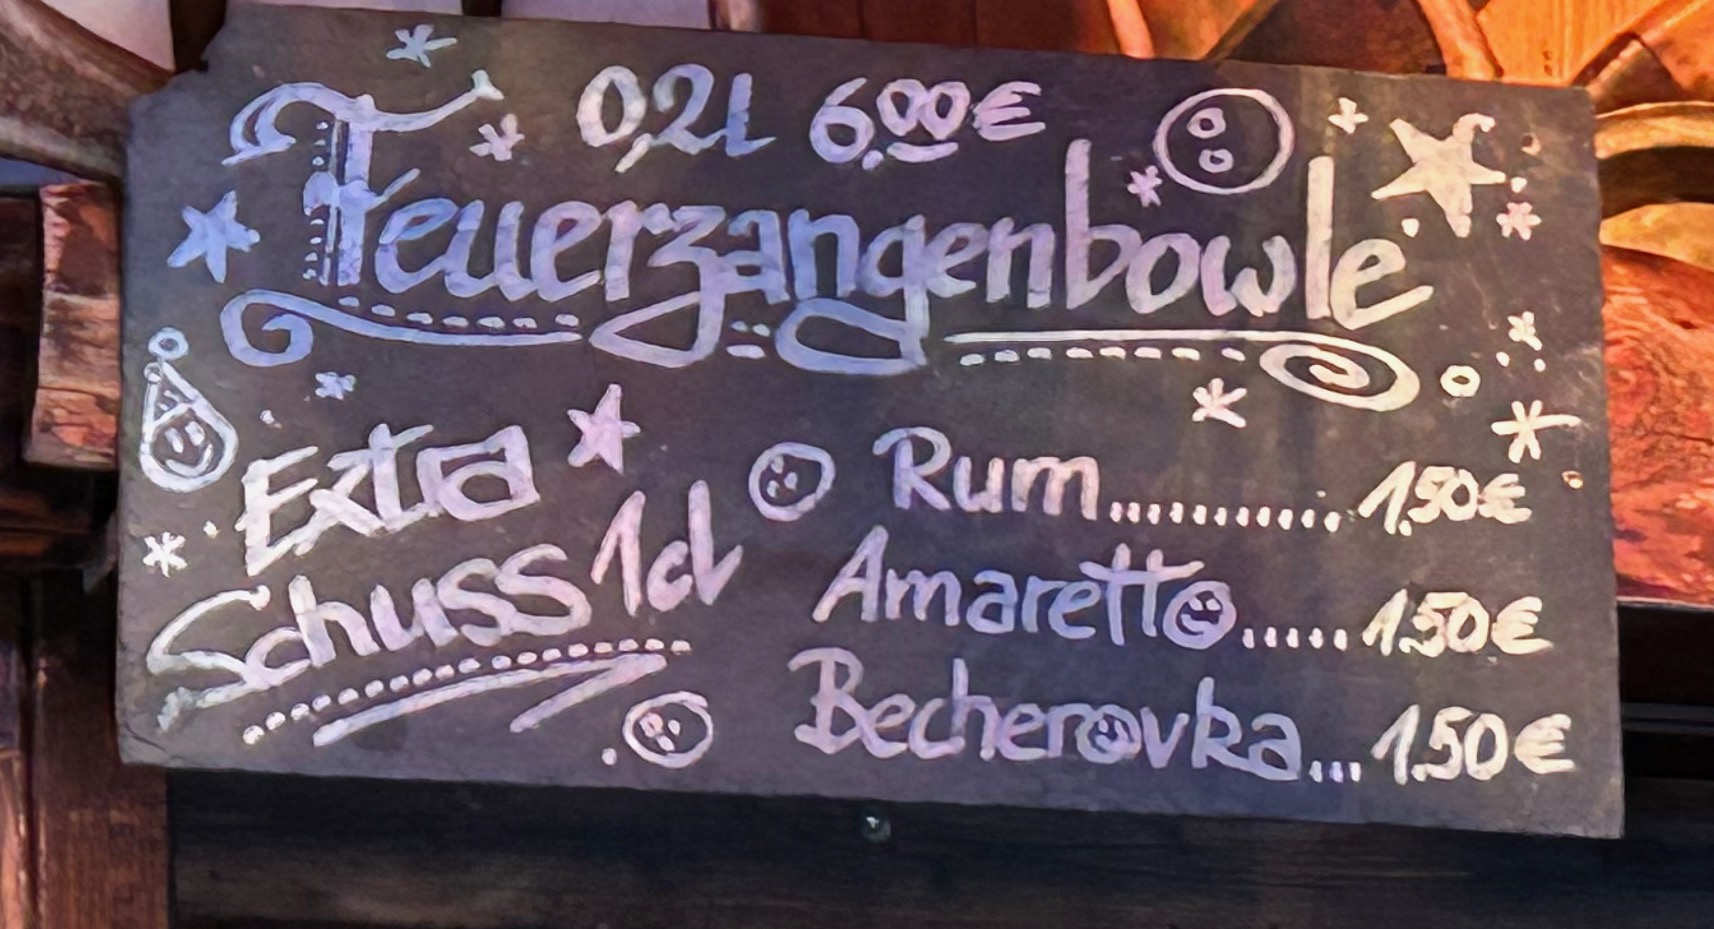 0,2l 6,00€
Feuerzangenbowle
Extra
Schuss 1cl
Rum............1,50€
Amaretto.....1,50€
Becherovka...1,50€